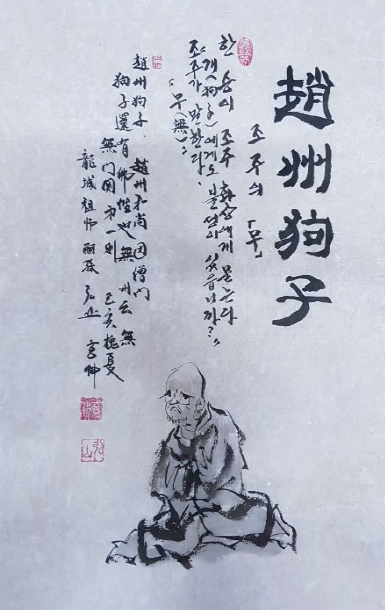 趙州狗子
조주의 「무」
한 승이 조주 화상에게 묻는다
"개(狗子)에게도 불성이 있읍니까?"
조주가 말한다.
"무(無)"
趙州狗子. 趙州和尚 因僧問
狗子還有佛性也無 州云 無
無門関第一則 己亥槐夏
龍城祖師 弘山
弘山